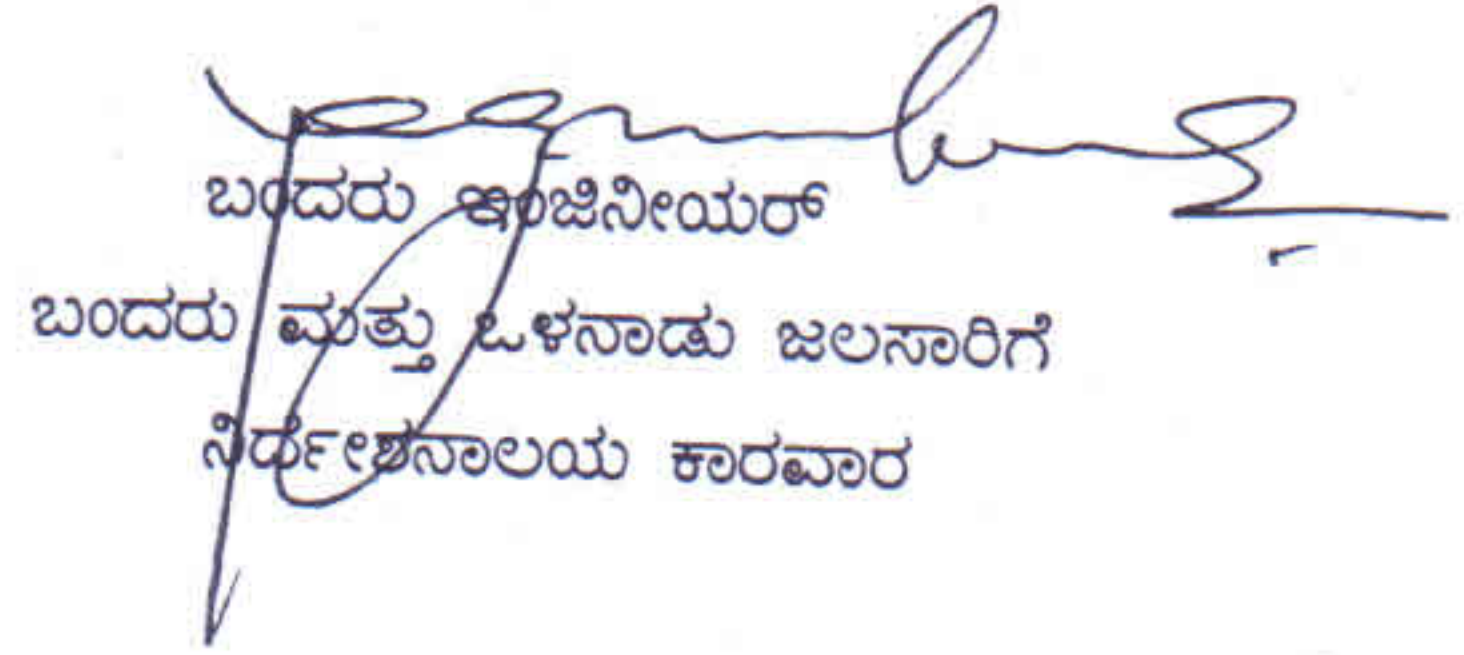 ಬಂದರು ಇಂಜಿನೀಯರ್
ಬಂದರು ಮತ್ತು ಒಳನಾಡು ಜಲಸಾರಿಗೆ
ನಿರ್ದೇಶನಾಲಯ ಕಾರವಾರ